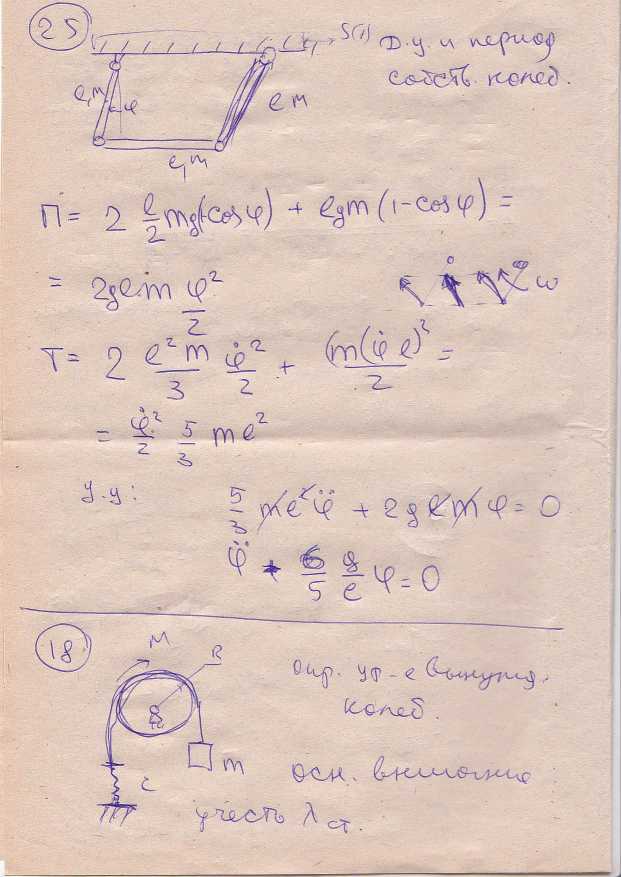 25
S(t)
Д.у. и период
собств. колеб.
l, m
φ
l m
l, m
П = 2 l/2 mg(1-cosφ) + lgm(1-cosφ) =
= 2glm φ²/2
ω
T = 2 l²m/3 φ̇²/2 + (m(φ̇l)²/2 =
= φ̇²/2 5/3 ml²
У.у:
5/3 ml²φ̈ + 2glmφ = 0
φ̈ + 6/5 g/l φ = 0
18
M
R
опр. ур-е вынужд.
колеб.
m
c
осн. внимание
учесть λ ст.